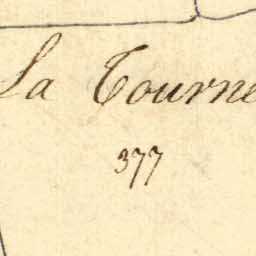 La Tourne
377